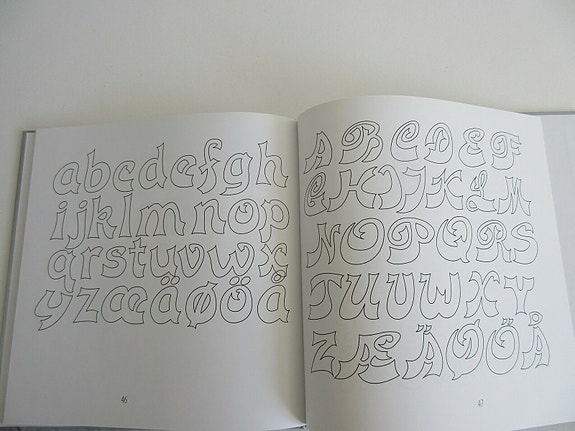 abcdefgh
ijklmnop
qrstuvwx
yzæäøöå
46
ABCDEF
GHIJKLM
NOPQRS
TUUWXY
ZÆÄØÖÅ
47